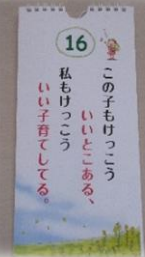 16
この子もけっこう
いいとこある、
私もけっこう
いい子育てしてる。